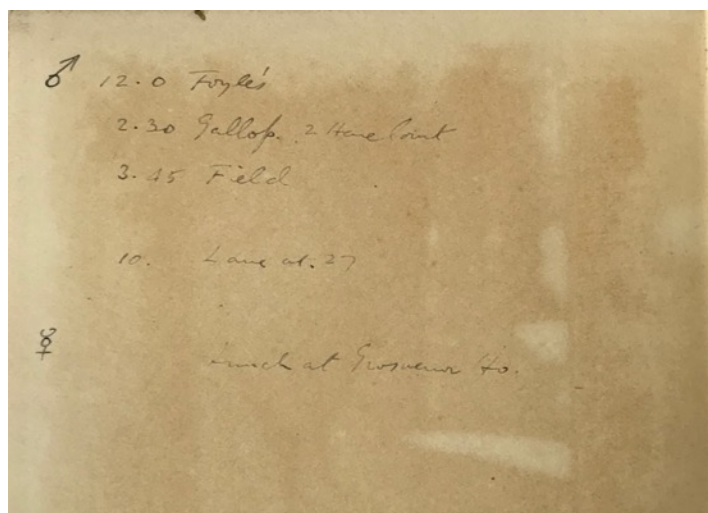 ♂ 12.0 Foyle's
2.30 Gallop. 2 Hare Court
3.45 Field
10. Lane at 27
☿
at Grosvenor Ho.